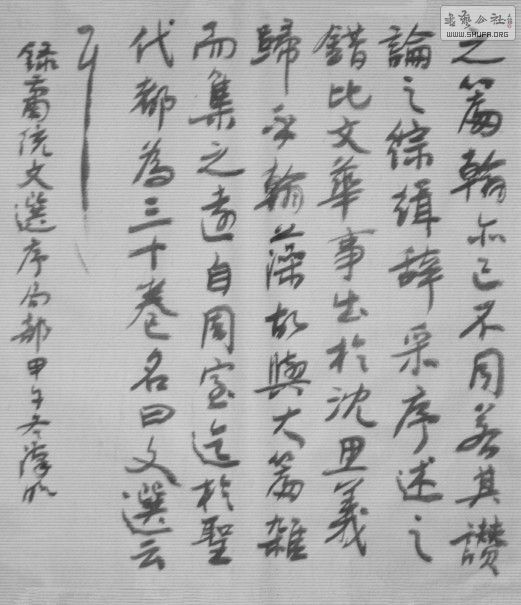 書藝公社
WWW.SHUFA.ORG
之篇翰亦已不同若其讃
論之綜緝辞采序述之
錯比文華事出於沈思義
歸乎翰藻故與大篇雜
而集之遠自周室迄於聖
代都為三十卷名曰文選云
耳
録蕭統文選序局部甲午冬